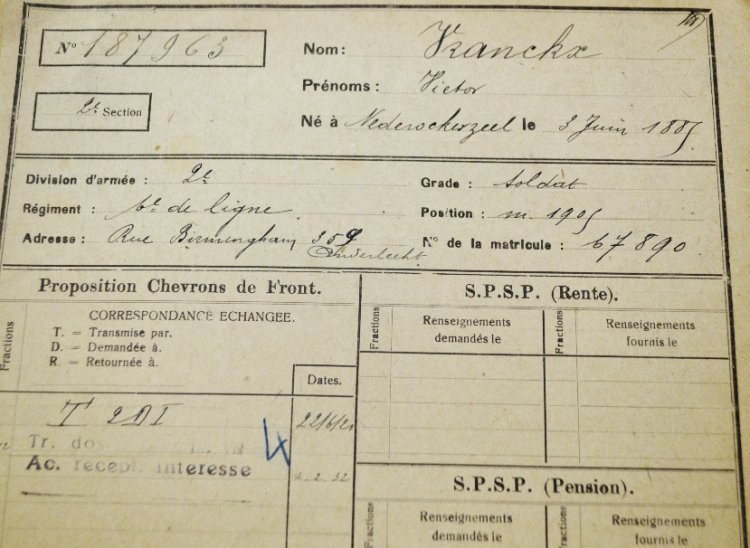 Nº 187963
Nom: Vranckx
Prénoms: Victor
2e Section
Né à Nederockerzeel le 3 Juin 1885
Division d'armée: 2e
Grade: Soldat
Régiment: 6e de ligne
Position: m. 1905
Adresse: Rue Birmingham 359
Anderlecht.
Nº de la matricule: 67890
Proposition Chevrons de Front.
Fractions
CORRESPONDANCE ECHANGEE.
T. = Transmise par.
D. = Demandée à.
R. = Retournée à.
Dates.
T 2DI 22/6/21
Tr. dos
4
Ac. recept. interesse 2.32
S.P.S.P. (Rente).
Fractions
Renseignements
demandés le
Fractions
Renseignements
fournis le
S.P.S.P. (Pension).
Fractions
Renseignements
demandés le
Fractions
Renseignements
fournis le